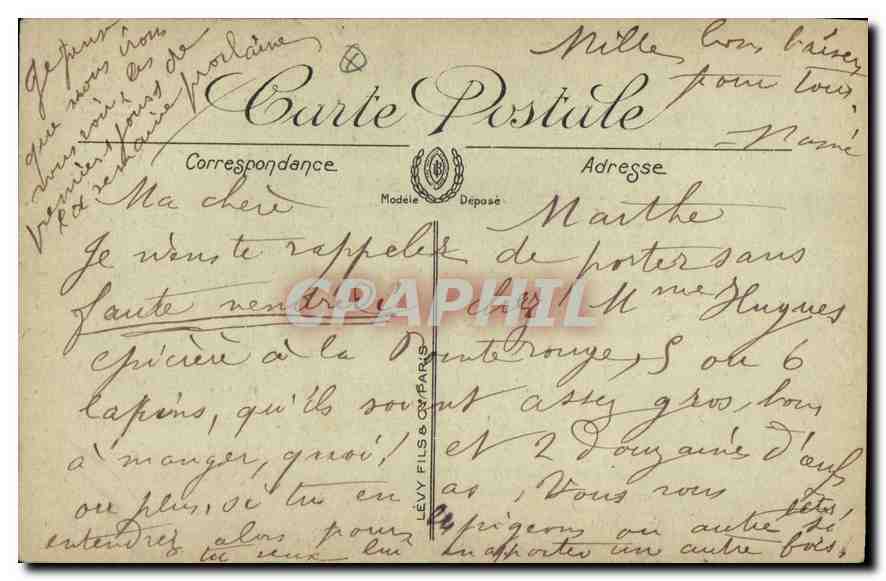 Je peux
que nous irons
vous voir les
premiers jours de
la semaine prochaine
Mille bons baisers
pour tous.
Carte Postale
Correspondance
Adresse
Modèle Déposé
Ma chère Marthe
Je viens te rappeler de porter sans
faute vendredi chez Mme Hugues
épicière à la Pointe rouge, 5 ou 6
lapins, qu'ils soient assez gros, bons
à manger, quoi! et 2 douzaines d'œufs
ou plus, si tu en as, Vous vous
entendrez alors pour les pigeons ou autre si
tu veux lui en apporter une autre fois.
LÉVY FILS & Cie PARIS
CPAPHIL